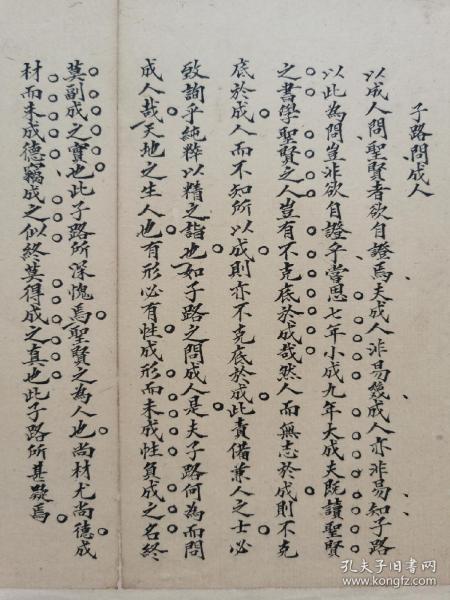 子路問成人
以成人問聖賢者欲自證焉夫成人非易幾成人亦非易知子路
以此為問豈非欲自證乎嘗思七年小成九年大成夫既讀聖賢
之書學聖賢之人豈有不克底於成哉然人而無志於成則不克
底於成人而不知所以成則亦不克底於成此責備兼人之士必
致詢乎純粹以精之詣也如子路之問成人是夫子路何為而問
成人哉天地之生人也有形必有性成形而未成性負成之名終
莫副成之實也此子路所深愧焉聖賢之為人也尚材尤尚德成
材而未成德竊成之似終莫得成之真也此子路所甚疑焉
孔夫子旧书网
www.kongfz.com